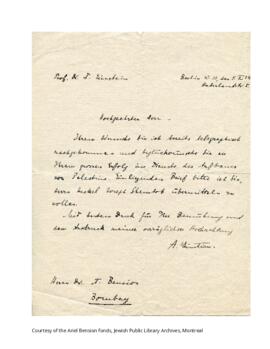 Prof. Dr. A. Einstein Berlin W. 30, den
Haberlandstr. 5
Hochgeehrter Herr
Ihrem Wunsche bin ich bereits telegraphisch
nachgekommen und beglückwünsche Sie zu
Ihrem grossen Erfolg im Dienste des Aufbaues
von Palästina. Einliegenden Brief bitte ich Sie,
Herrn übermitteln zu
wollen.
Mit bestem Dank für Ihre Bemühung und
dem Ausdruck meiner vorzüglichen Hochachtung
A. Einstein.
Herrn Dr. A. Bension
Bombay
Courtesy of the Ariel Bension fonds, Jewish Public Library Archives, Montreal